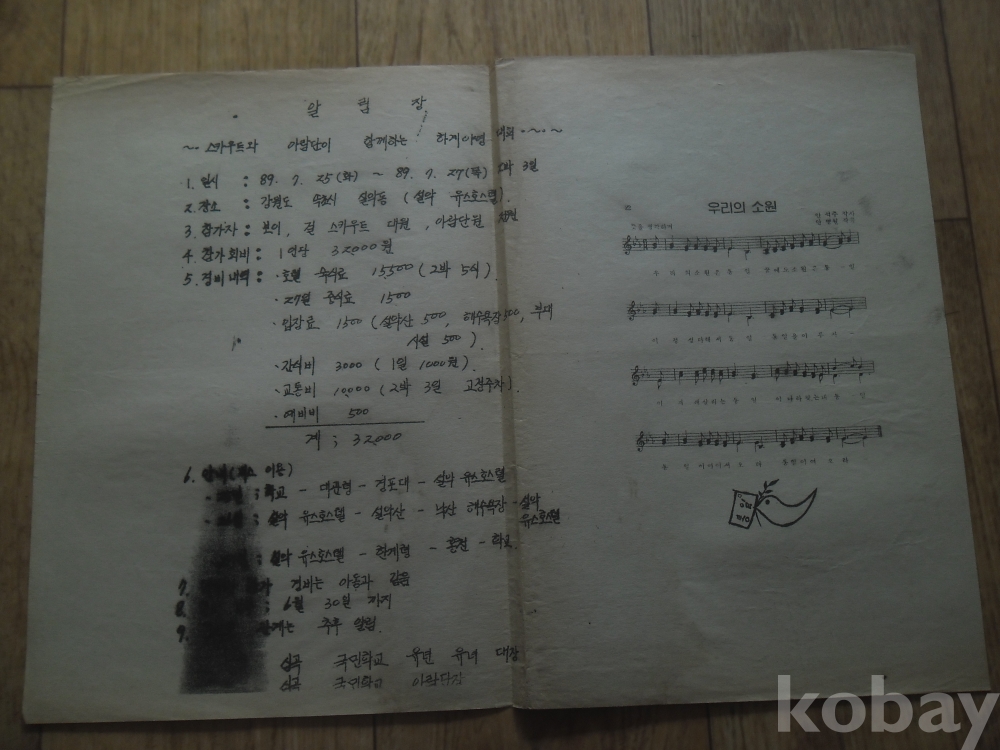 알 림 장
~. 스카우트와 아람단이 함께하는 하계야영 대회 .~.~
1. 일시 : 89. 7. 25(화) ~ 89. 7. 27(목) 2박 3일
2. 장소 : 강원도 속초시 설악동 (설악 유스호스텔).
3. 참가자 : 보이, 걸 스카우트 대원, 아람단원
4. 참가회비 : 1인당 32000원
5. 경비내역 : ·호텔 숙식료 15,500 (2박 5식)
·27일 중식료 1500
·입장료 1500 (설악산 500, 해수욕장 500, 부대
시설 500)
·간식비 3000 (1일 1000원).
·교통비 10,000 (2박 3일 고정주차).
·예비비 500
계 ; 32000
6. (버스 이용)
; 학교 - 대관령 - 경포대 - 설악 유스호스텔
; 설악 유스호스텔 - 설악산 - 낙산 해수욕장 - 설악
유스호스텔
; 설악 유스호스텔 - 한계령 - 홍천 - 학교.
7. 경비는 아동과 같음
8. ; 6월 30일 까지
9. 추후 알림.
심곡 국민학교 유년 유녀 대장
심곡 국민학교 아람단장
우리의 소원
우 리 의 소 원 은 통 일 꿈 에 도 소 원 은 통 - 일
이 정 성 다 해 서 통 일 통 일 을 이 루 자 -
이 겨 레 살 리 는 통 일 이 나 라 찾 는 데 통 일
통 일 이 여 어 서 오 라 통 일 이 여 오 라
kobay